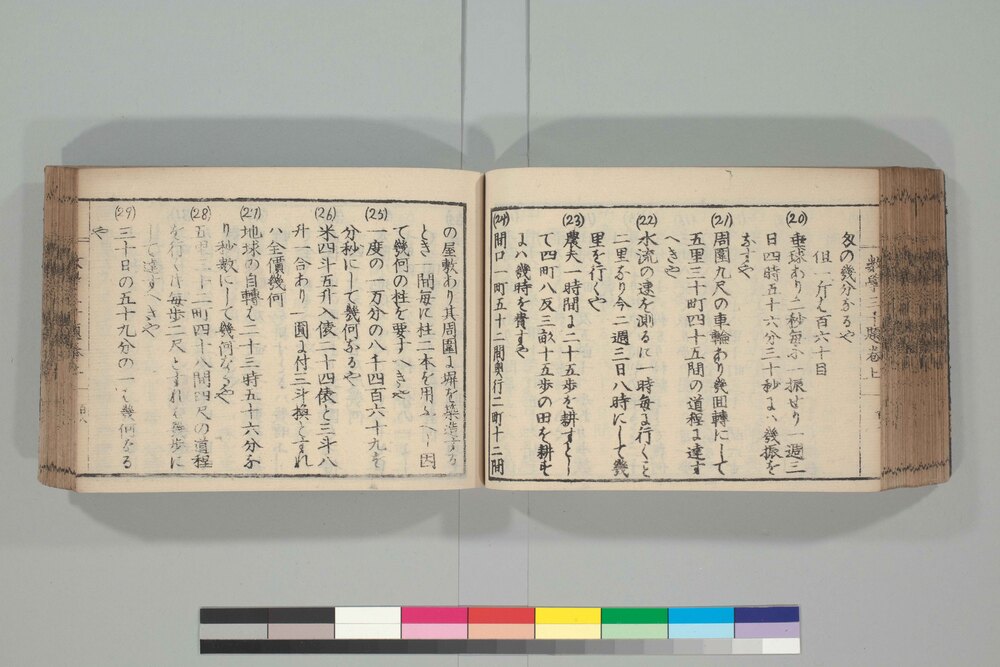 匁の幾分なるや
但一斤ハ百六十目
(20) 垂球あり二秒毎に一振せり一週三
日四時五十六分三十秒にハ幾振を
なすや
(21) 周圍九尺の車輪あり幾回轉にして
五里三十町四十五間の道程に達す
へきや
(22) 水流の速を測るに一時毎に行くこと
二里なり今二週三日八時にして幾
里を行くや
(23) 農夫一時間に二十五歩を耕すとし
て四町八反三畝十五歩の田を耕す
にハ幾時を費すや
(24) 間口一町五十二間奥行二町十二間
の屋敷あり其周圍に塀を築造する
とき一間毎に柱二本を用ふへし因
て幾何の柱を要すへきや
(25) 一度の一万分の八千四百六十九を
分秒にして幾何なるや
(26) 米四斗五升入俵二十四俵と三斗八
升一合あり一圓に付三斗換とすれ
ハ全價幾何
(27) 地球の自轉ハ二十三時五十六分な
り秒数にして幾何なるや
(28) 五里三十二町四十八間四尺の道程
を行くに毎歩二尺とすれハ幾歩に
して達すへきや
(29) 三十日の五十九分の一ハ幾何なる
や